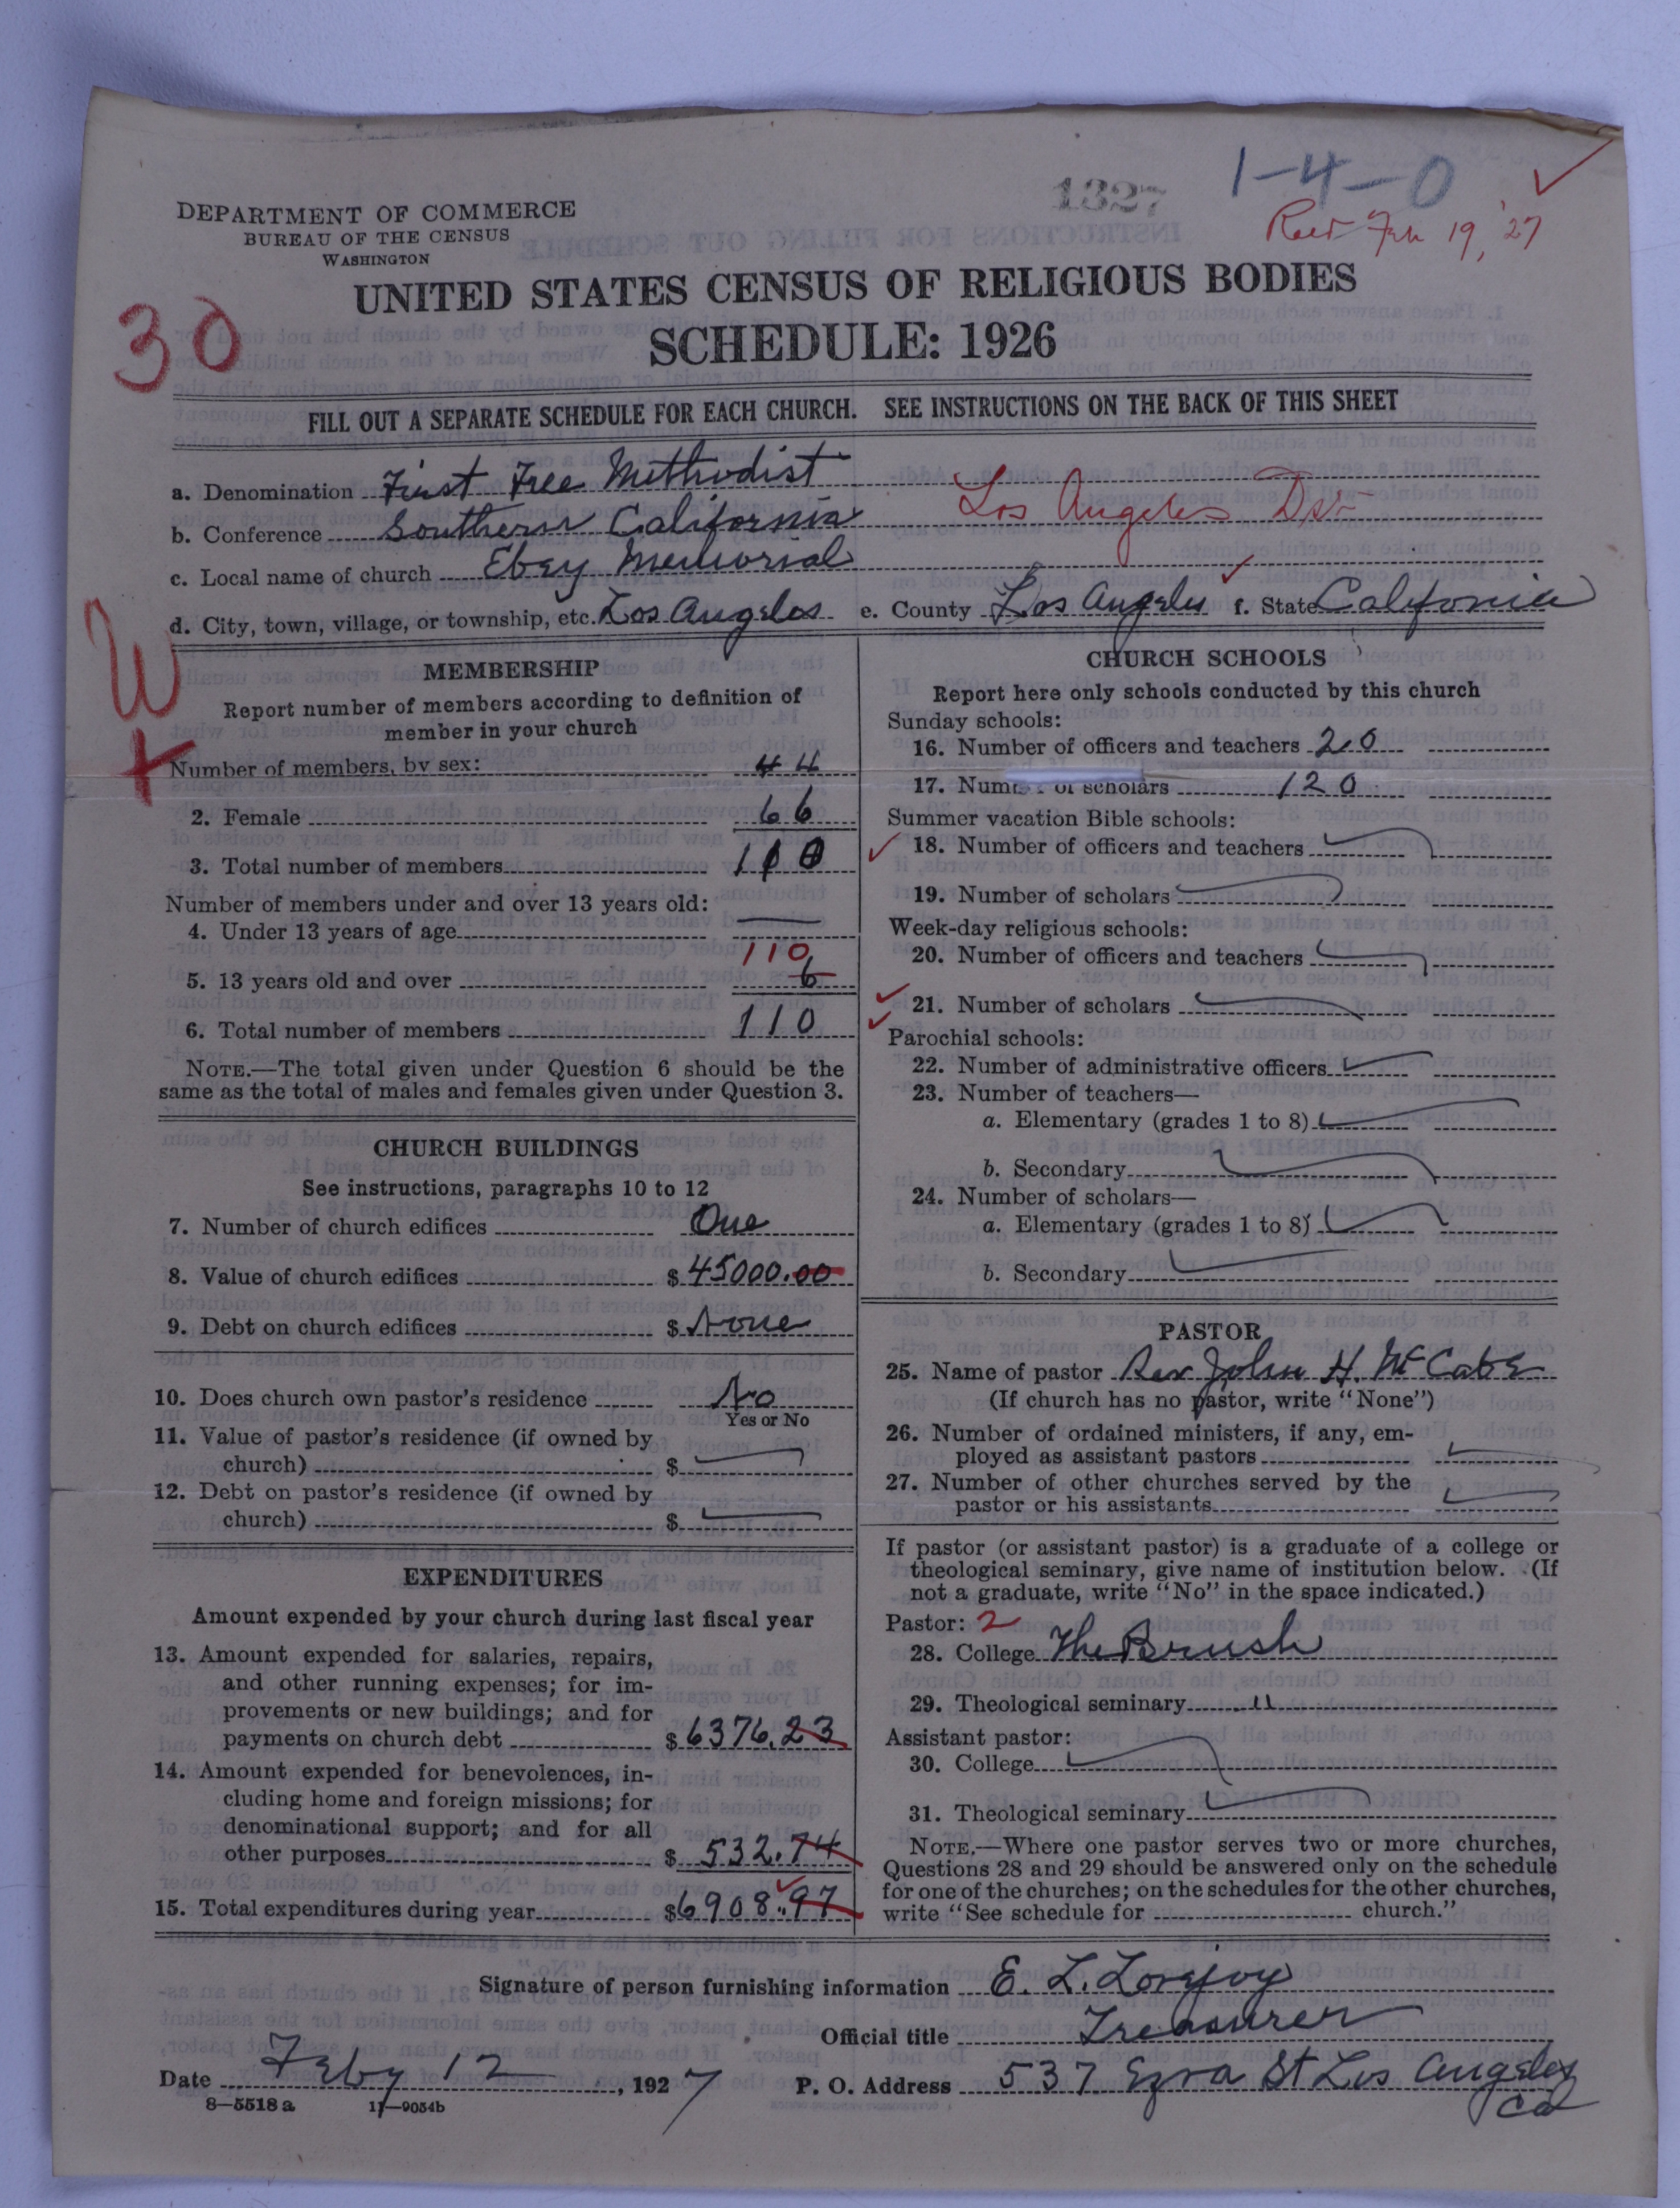 1327 1-4-0
DEPARTMENT OF COMMERCE
BUREAU OF THE CENSUS
WASHINGTON
Recd Feb 19, '27
UNITED STATES CENSUS OF RELIGIOUS BODIES
30
SCHEDULE: 1926
FILL OUT A SEPARATE SCHEDULE FOR EACH CHURCH. SEE INSTRUCTIONS ON THE BACK OF THIS SHEET
a. Denomination First Free Methodist
b. Conference Southern California Los Angeles Dist
c. Local name of church Ebey Memorial
d. City, town, village, or township, etc. Los Angeles e. County Los Angeles f. State California
W
X
MEMBERSHIP
Report number of members according to definition of
member in your church
Number of members, by sex: 44
2. Female 66
3. Total number of members 110
Number of members under and over 13 years old:
4. Under 13 years of age —
110
5. 13 years old and over 6
6. Total number of members 110
NOTE.—The total given under Question 6 should be the
same as the total of males and females given under Question 3.
CHURCH BUILDINGS
See instructions, paragraphs 10 to 12
7. Number of church edifices One
8. Value of church edifices $ 45000.00
9. Debt on church edifices $ None
10. Does church own pastor's residence No
Yes or No
11. Value of pastor's residence (if owned by
church) $
12. Debt on pastor's residence (if owned by
church) $
EXPENDITURES
Amount expended by your church during last fiscal year
13. Amount expended for salaries, repairs,
and other running expenses; for im-
provements or new buildings; and for
payments on church debt $ 6376.23
14. Amount expended for benevolences, in-
cluding home and foreign missions; for
denominational support; and for all
other purposes $ 532.74
15. Total expenditures during year $6908.97
CHURCH SCHOOLS
Report here only schools conducted by this church
Sunday schools:
16. Number of officers and teachers 20
17. Number of scholars 120
Summer vacation Bible schools:
18. Number of officers and teachers
19. Number of scholars
Week-day religious schools:
20. Number of officers and teachers
21. Number of scholars
Parochial schools:
22. Number of administrative officers
23. Number of teachers—
a. Elementary (grades 1 to 8)
b. Secondary
24. Number of scholars—
a. Elementary (grades 1 to 8)
b. Secondary
PASTOR
25. Name of pastor Rev John H. McCabe
(If church has no pastor, write "None")
26. Number of ordained ministers, if any, em-
ployed as assistant pastors
27. Number of other churches served by the
pastor or his assistants
If pastor (or assistant pastor) is a graduate of a college or
theological seminary, give name of institution below. (If
not a graduate, write "No" in the space indicated.)
Pastor: 2
28. College The Brush
29. Theological seminary "
Assistant pastor:
30. College
31. Theological seminary
NOTE.—Where one pastor serves two or more churches,
Questions 28 and 29 should be answered only on the schedule
for one of the churches; on the schedules for the other churches,
write "See schedule for church."
Signature of person furnishing information E. L. Lovejoy
Official title Treasurer
Date Feby 12, 1927 P. O. Address 537 Ezra St Los Angeles
Cal
8—5518a 11—9054b